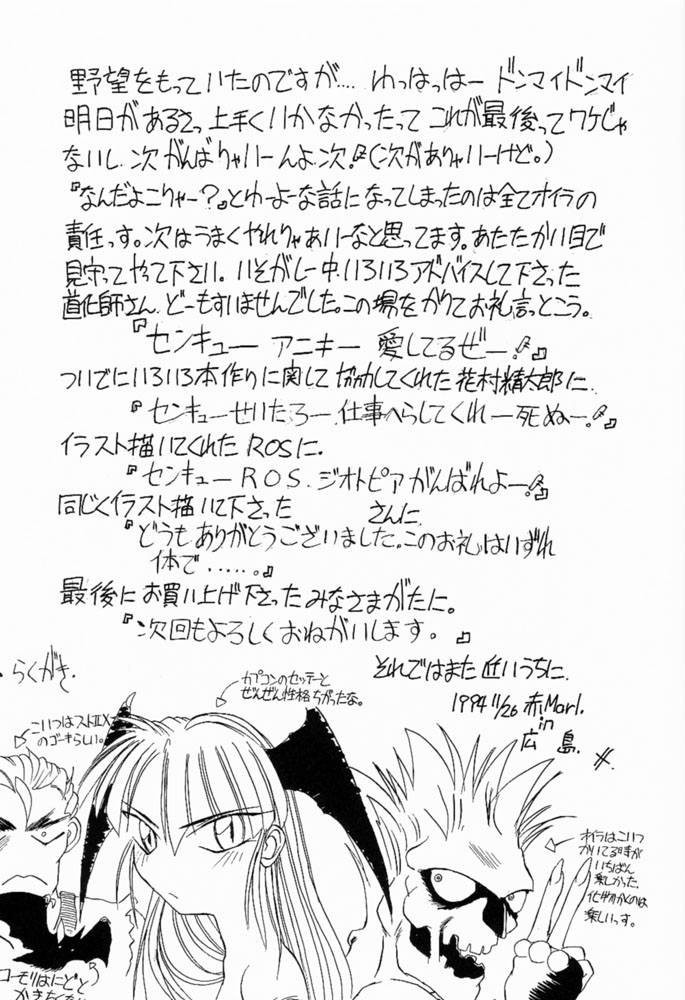 野望をもっていたのですが.... わっはっはー ドンマイドンマイ
明日があるさっ 上手くいかなかったって これが最後ってワケじゃ
ないし、次がんばりゃいーんよ、次!(次がありゃいーけど。)
『なんだよこりゃー?』とゆーよーな話になってしまったのは全てオイラの
責任っす。次はうまくやれりゃあいーなと思ってます。あたたかい目で
見守ってやって下さい。いそがしー中、いろいろアドバイスして下さった
師さん、どーもすいませんでした。この場をかりてお礼言っとこう。
『センキュー アニキー 愛してるぜー!』
ついでにいろいろ本作りに関して協力してくれた花村精太郎に、
『センキューせいたろー、仕事へらしてくれー死ぬー!』
イラスト描いてくれたROSに、
『センキューROS、ジオトピアがんばれよー!』
同じくイラスト描いて下さった さんに、
『どうもありがとうございました。このお礼はいずれ
体で.....。』
最後にお買い上げ下さったみなさまがたに。
『次回もよろしくおねがいします。』
それではまた近いうちに、
1994 11/26 赤Marl.
in
広島.
らくがき.
カプコンのセッテーと
ぜんぜん性格ちがったな。
こいつはストⅡX
のゴーキらしい。
オイラはこいつ
かいてる時が
いちばん
楽しかった。
化ザかくのは
楽しいっす。
コーモリはにどと